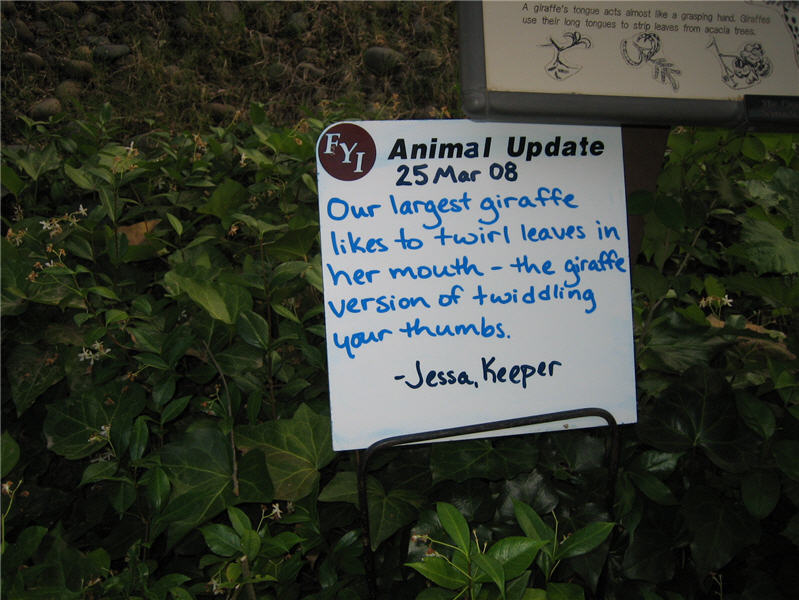 A giraffe's tongue acts almost like a grasping hand. Giraffes
use their long tongues to strip leaves from acacia trees.
FYI Animal Update
25 Mar 08
Our largest giraffe
likes to twirl leaves in
her mouth - the giraffe
version of twiddling
your thumbs.
-Jessa, Keeper